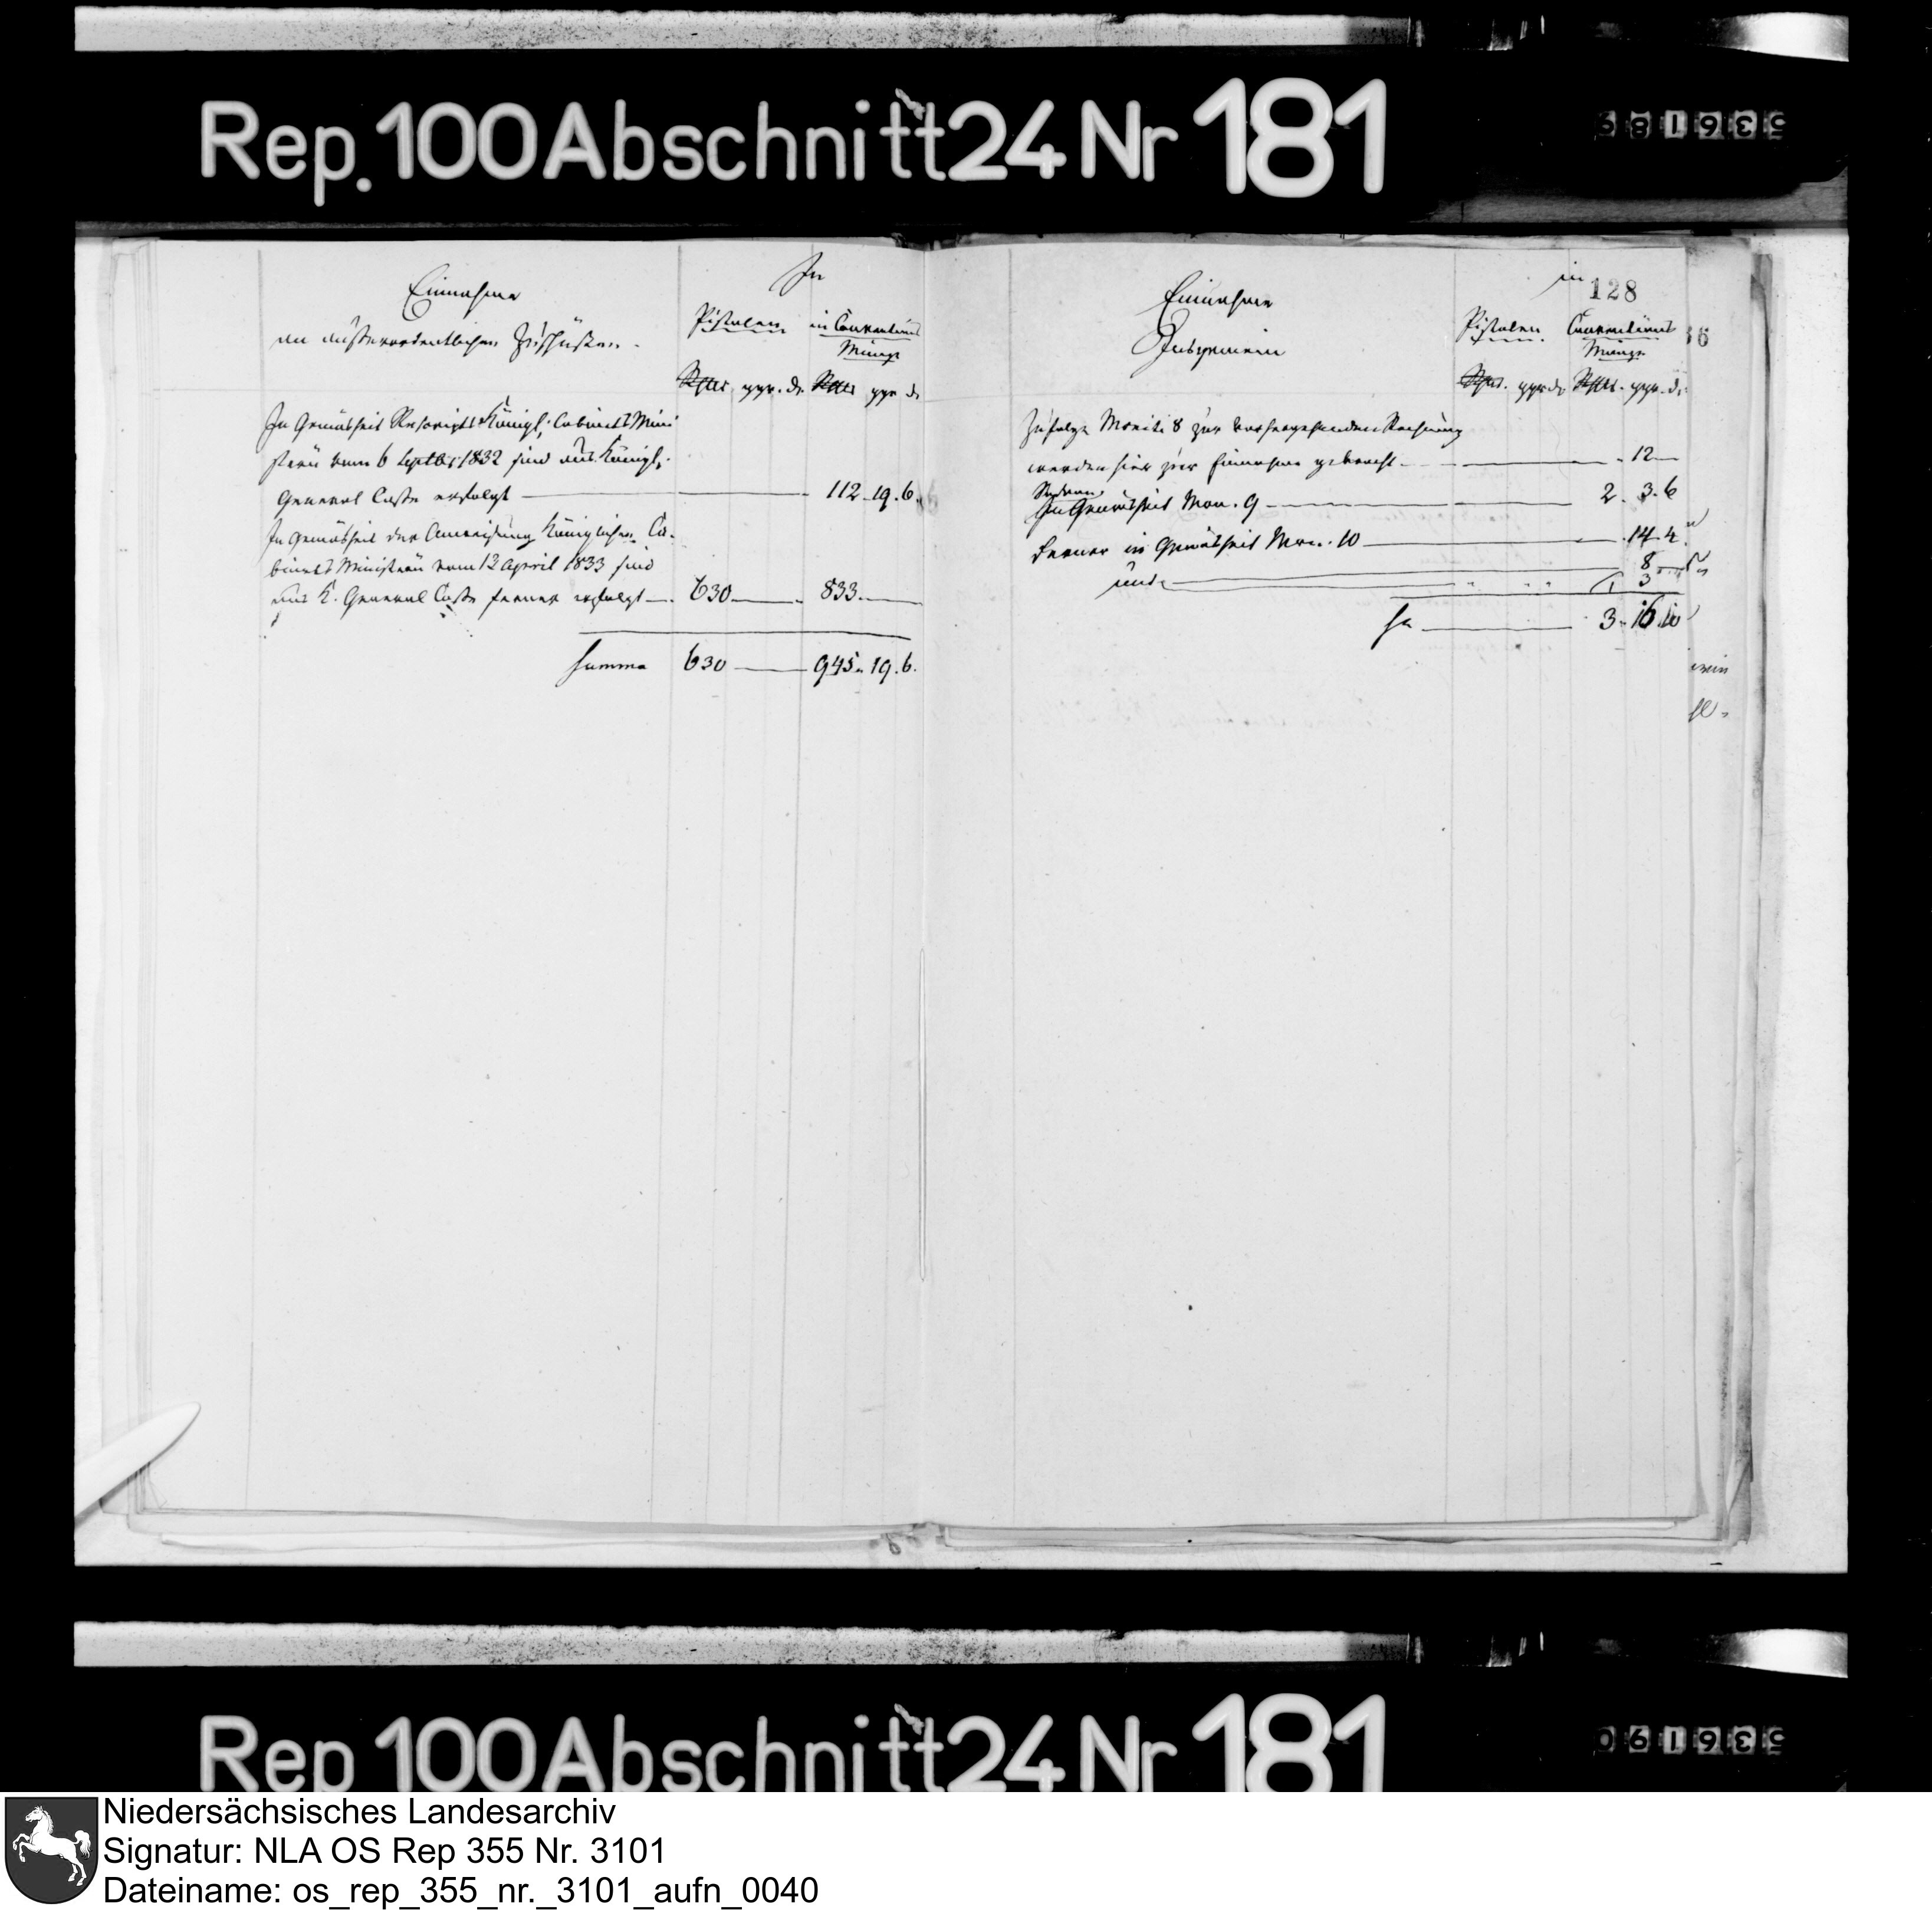 Rep. 100 Abschnitt 24 Nr 181
536189
Einnahme
an außerordentlichen Zuschüßen.
In
Pistolen
in Conventions
Münze
Rthlr ggr. d.
Rthlr ggr d.
In Gemäsheit Rescripts Königl. Cabinets Mini
sterii vom 6 Septbr. 1832 sind aus Königl.
General Casse erfolgt 112 19. 6.
In Gemäsheit der Anweisung Königlichen Ca-
binets Ministerii vom 13 April 1833 sind
aus K. General Casse ferner erfolgt 630 833
Summa 630 945 19. 6.
128
Einnahme
Insgemein
in
Pistolen.
Conventions
Münze
Rthlr. ggr d.
Rthlr. ggr. d.
Zufolge Moniti 8 zur vorhergehenden Rechnung
werden hier zur Einnahme gebracht 12
In Gemäsheit Mon. 9 2. 3. 6
Ferner in Gemäsheit Mon. 10 14. 4
und
Sa 3. 16. 10
Rep 100 Abschnitt 24 Nr 181
536190
Niedersächsisches Landesarchiv
Signatur: NLA OS Rep 355 Nr. 3101
Dateiname: os_rep_355_nr._3101_aufn_0040